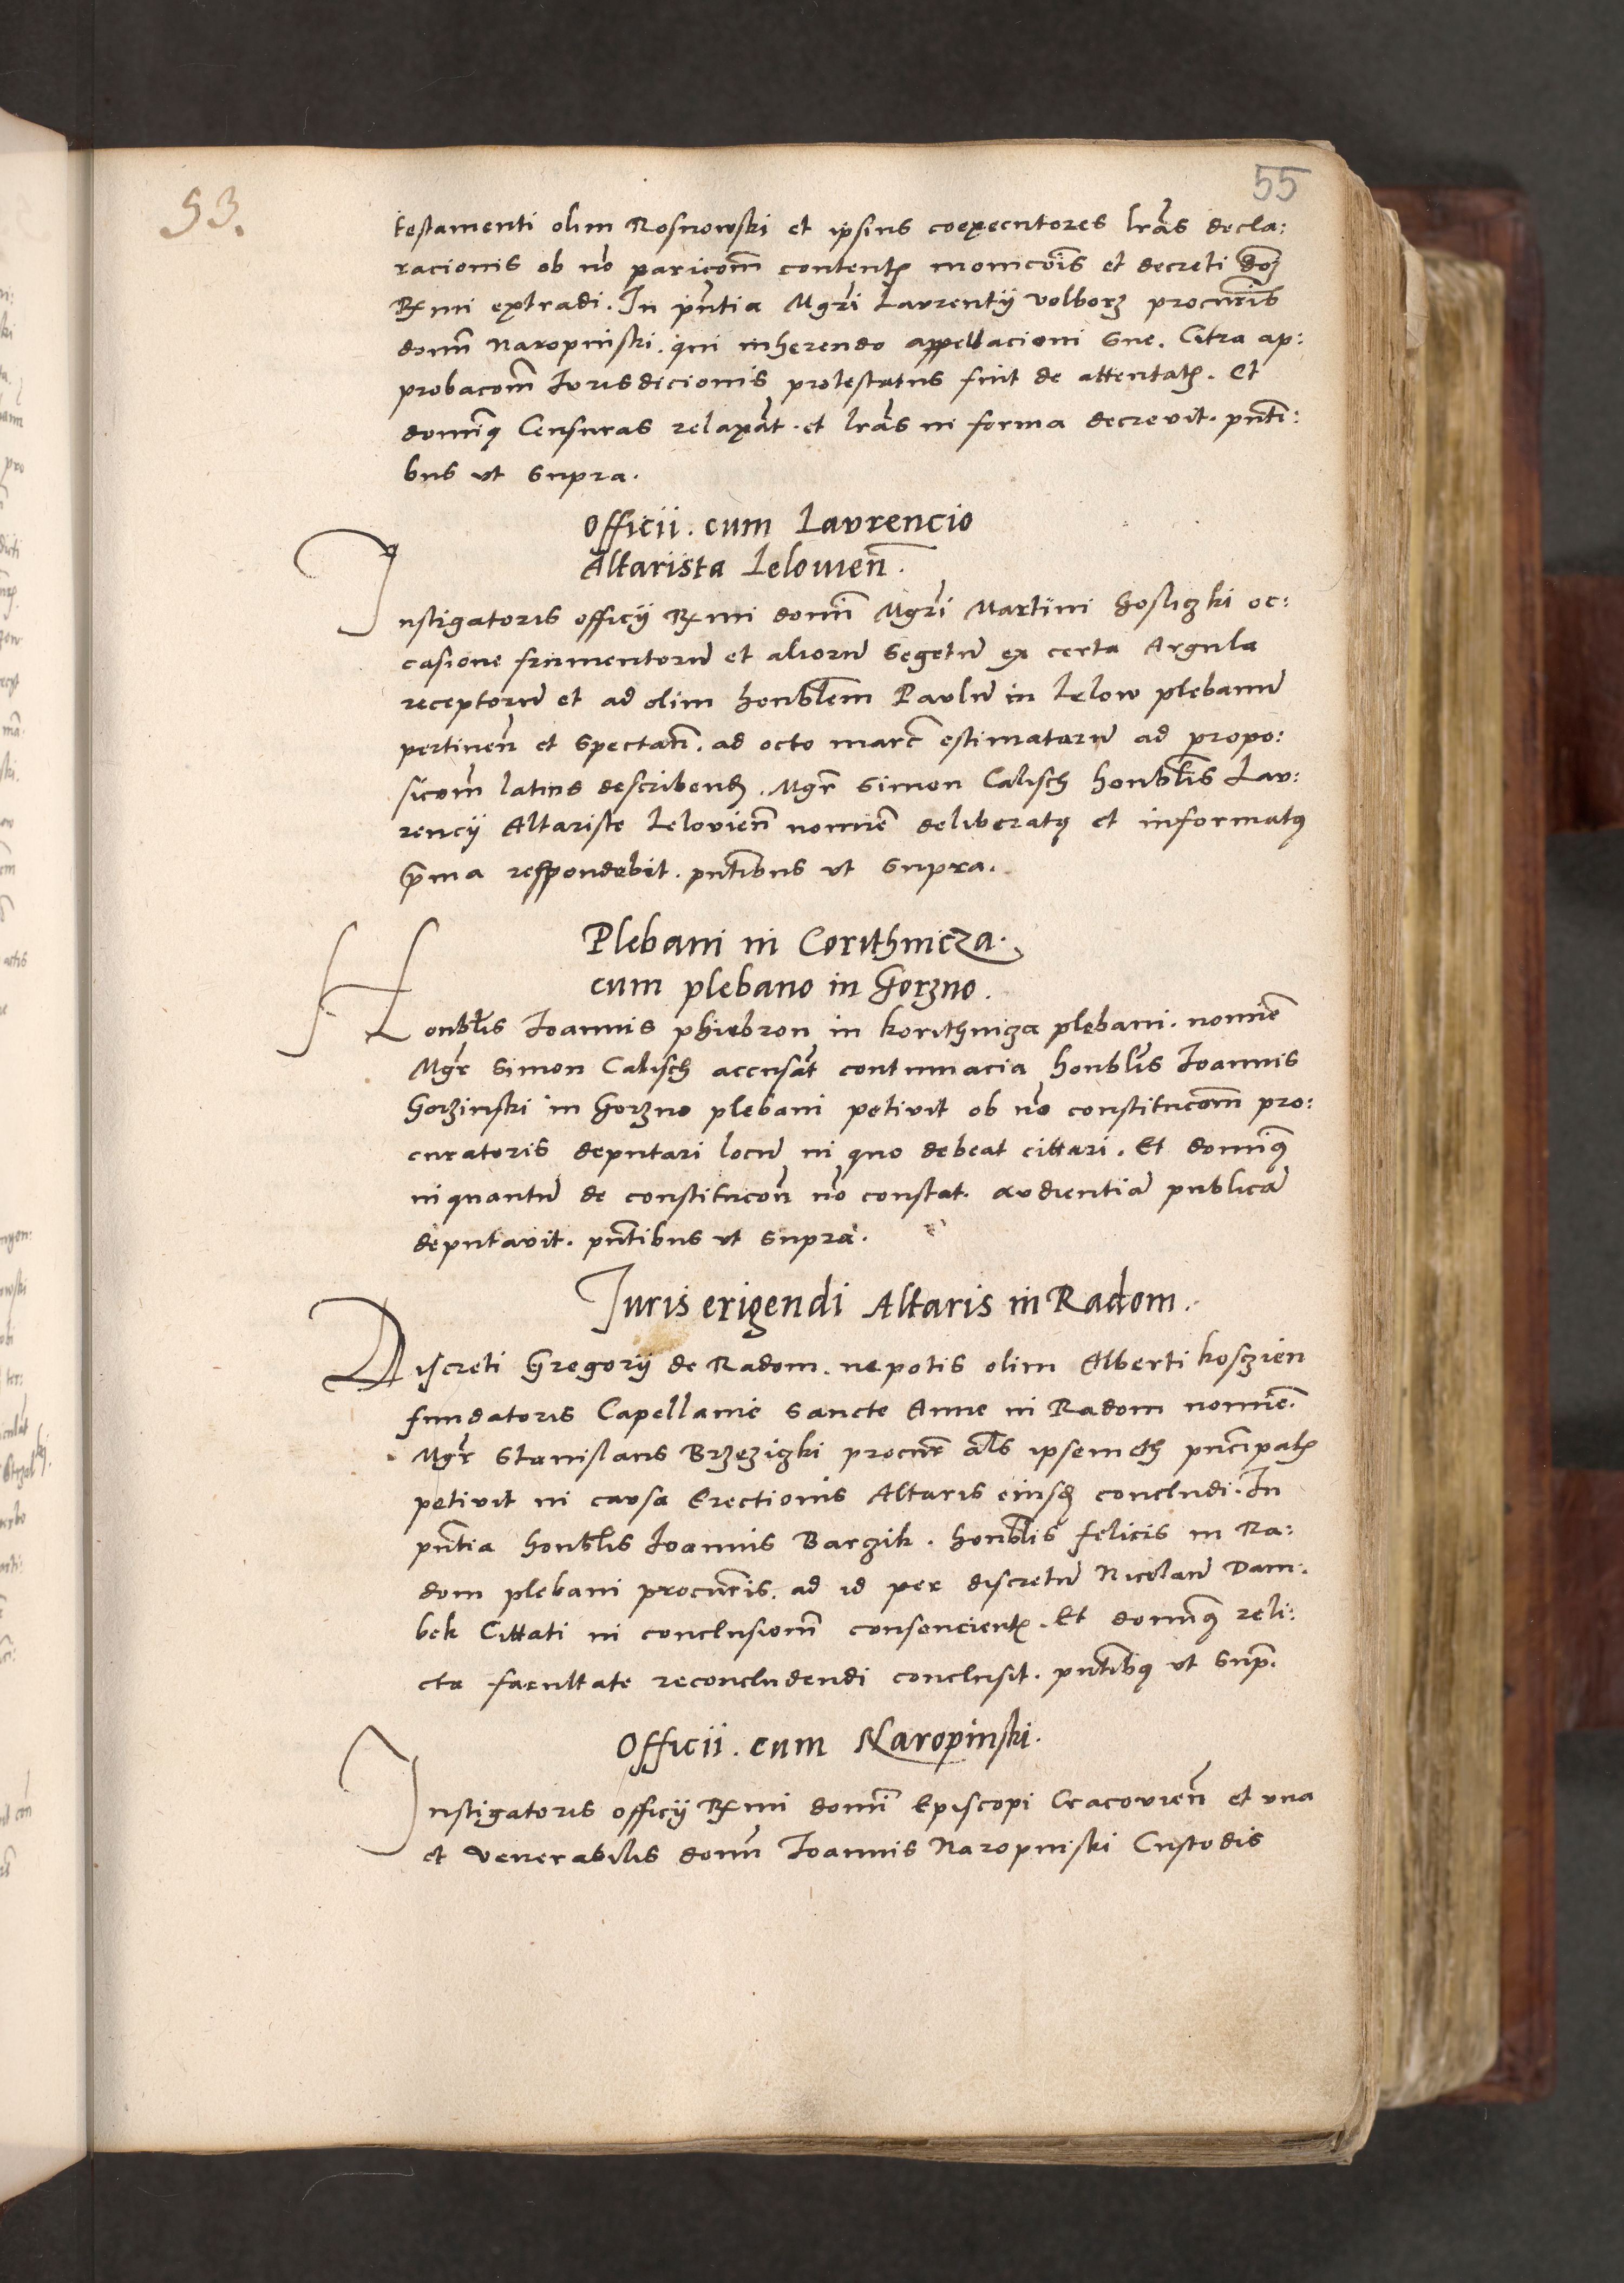 53.
55
testamenti olim Rosnowski et ipsius coexecutores lrãs decla:
racionis ob nõ paricõm content⁊ monicõis et decreti
Rmi extradi. In pñtia Mgrĩ Laurentij volborz procurĩs
domĩ Naropinski. qui inherendo appellacioni sue. Citra ap:
probacõm Iurisdicionis protestatus fuit de attentat⁊. Et
dominꝯ Censuras relaxãt. et lrãs in forma decrevit. pñti:
bus vt supra.
Officii. cum Laurencio
Altarista Lelouień.
Instigatoris officij Rmi domĩ Mgrĩ Martini oc:
casione frumentorũ et aliorũ segetũ ex certa Argula
receptorũ et ad olim honblẽm Paulũ in Lelow plebanũ
pertineñ et spectañ. ad octo marc̃ estimatarũ ad propo:
sicõm latius describend̃. Mgr̃ Simon Calisch honblĩs Lau:
rencij Altariste Leloviẽn nomiẽ deliberatꝯ et informatꝯ
p̃ma respondebit. pñtibus vt supra.
Plebani in Corithnicza.
cum plebano in Gorzno.
Honblĩs Ioannis phiebron in korithnicza plebani. nomiẽ
Mgr̃ Simon Calisch accusãt contumacia honblĩs Ioannis
Gorzinski in Gorzno plebani petivit ob nõ constitucõm pro:
curatoris deputari locũ in quo debeat cittari. Et dominꝯ
inquantũ de constitucõn nõ constat. audientiã publicã
deputavit. pñtibus vt supra.
Iuris erigendi Altaris in Radom.
Discreti Gregorij de Radom. nepotis olim Alberti koszien
fundatoris Capellanie sancte Anne in Radom nomiẽ.
Mgr̃ Stanislaus Brzezizki procur̃ al̃s ipsemet⁊ pñcipat⁊
petivit in causa Erectionis Altaris eiusd̃ concludi. In
pñtia honblĩs Ioannis Barzik. honblĩs felicis in Ra:
dom plebani procurĩs. ad id per discretũ Nicolaũ Dam:
bek Cittati in conclusionẽ consencient⁊. Et dominꝯ reli:
cta facultate reconcludendi conclusit. pñtibꝯ vt sup̃.
Officii. cum Naropinski.
Instigatoris officij Rmi domĩ Episcopi Cracoviẽn et vna
et venerabilis domĩ Ioannis Naropinski Custodis